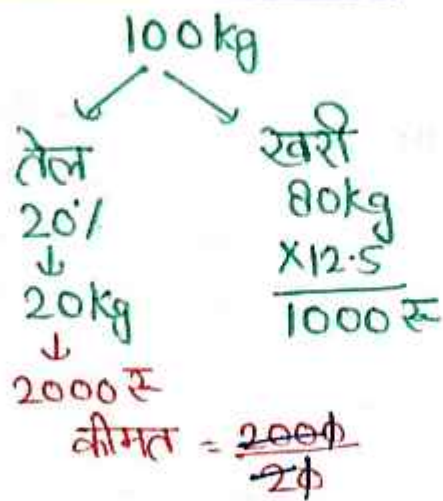 100kg
तेल
20%
↓
20kg
↓
2000 रू
खरी
80kg
×12.5
1000 रू
कीमत = 2000/20